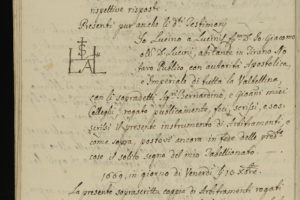 rispettive risposti
Presenti pur anche li d.i Testimonij
Io Lucino à Lucini f. q.m D. Gio: Giacomo
dell D. Lucini, abitante in Tirano No-
taro Publico con autorità Apostolica,
e Imperiale di tutta la Valtellina,
con li sopradetti Sig.ri Bernardino, e Gioani miei
Colleghi, rogato publicamente, feci, scrissi, e sos-
crissi il presente instrumento di Arbitramenti, e
come sopra, postovi ancora in fede delle predette
cose il solito segno del mio Tabellionato.
1669, in giorno di Venerdì li 10
La presente soprascritta coppia di Arbitramenti rogati